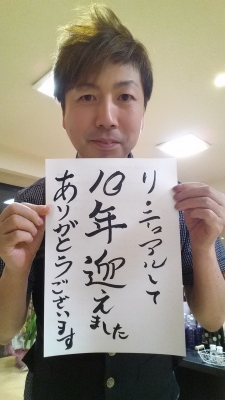 リニューアルして
10年迎えました
ありがとうございます